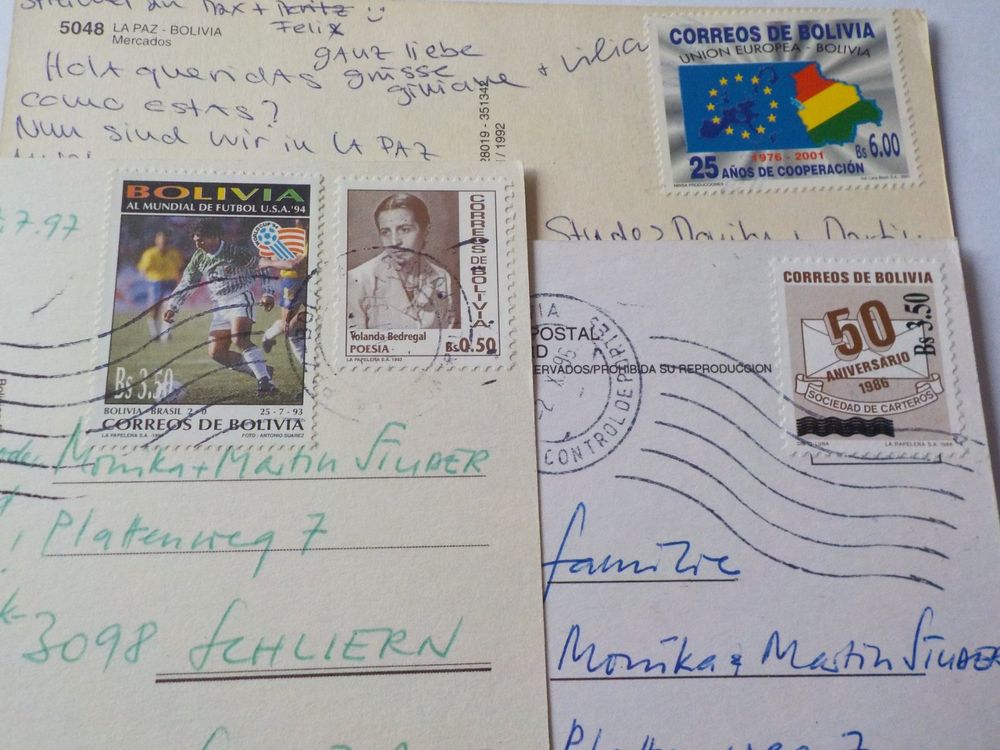 5048 LA PAZ - BOLIVIA
Mercados
Felix
ganz liebe
Hola queridas grüsse
como estas?
Nun sind wir in LA PAZ
28019 - 351342
/ 1992
CORREOS DE BOLIVIA
UNION EUROPEA - BOLIVIA
1976 - 2001
Bs 6.00
25 AÑOS DE COOPERACIÓN
7.97
BOLIVIA
AL MUNDIAL DE FUTBOL U.S.A.'94
Bs 3.50
BOLIVIA - BRASIL 2 - 0 25 - 7 - 93
CORREOS DE BOLIVIA
LA PAPELERA S.A. FOTO : ANTONIO SUAREZ
CORREOS DE BOLIVIA
Yolanda Bedregal
POESIA
Bs 0.50
LA PAPELERA S.A. 1992
POSTAL
ERVADOS/PROHIBIDA SU REPRODUCCION
CONTROL DE
CORREOS DE BOLIVIA
Bs 3.50
50
ANIVERSARIO
1986
SOCIEDAD DE CARTEROS
LA PAPELERA S.A. 1986
Monika + Martin STUDER
Plattenweg 7
3098 SCHLIERN
Familie
Monika & Martin STUDER
Plattenweg 7